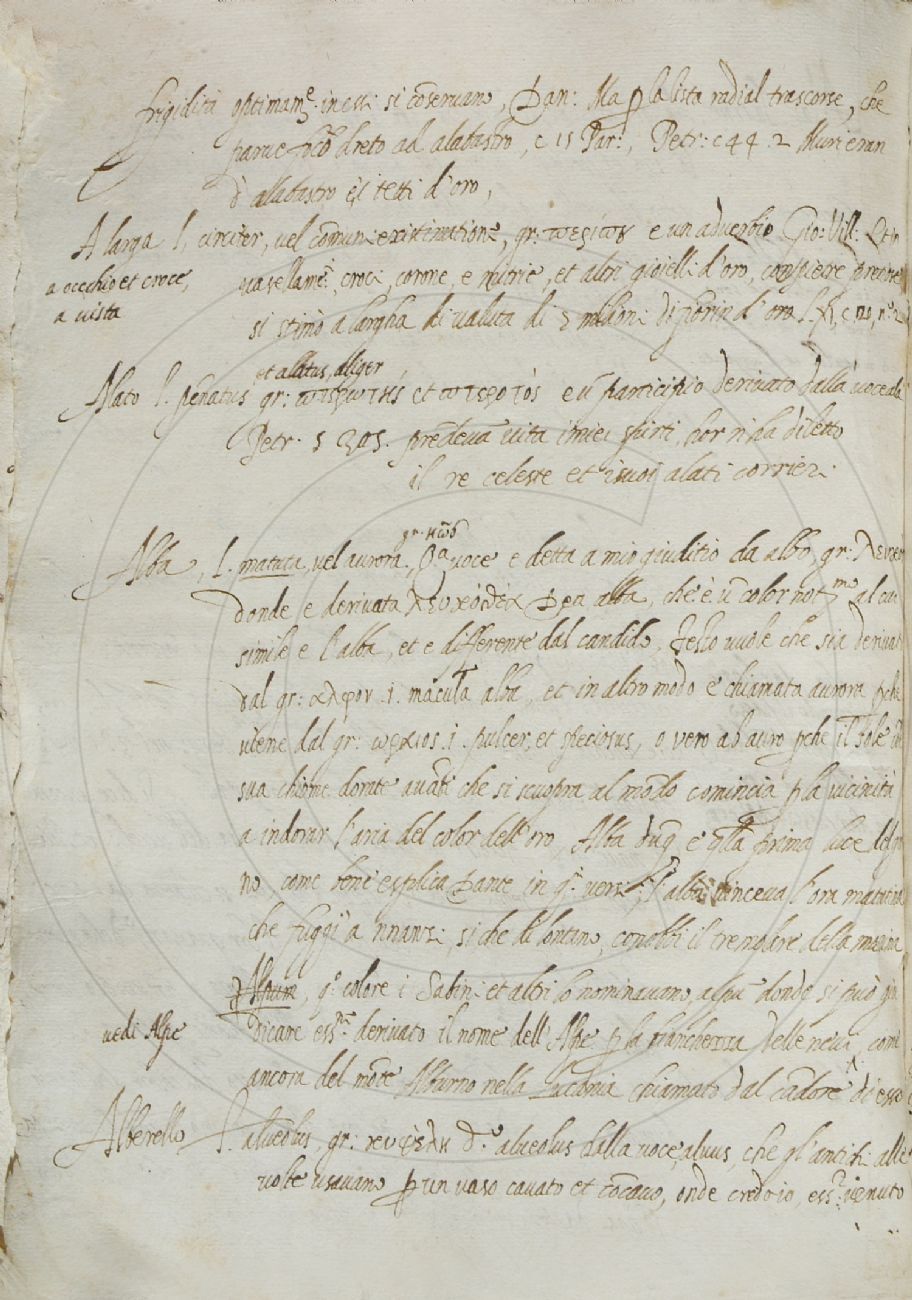 frigidità optimam.e in essi si coseruano, Dan: Ma p la lista radial trascorse, che
parue foco dreto ad alabastro, c 15 Par:, Petr: c 44 : 2 Muri eran
d' allabastro e i tetti d'oro,
A larga l. circiter, uel comuni existimatione, gr: e un aduerbio Gio: Vill:
a occhio et croce,
a uista
uasellame, croci, corone, e mitrie, et altri gioielli d'oro, con pietre pretiose
si stimò a largha di ualuta di 5 milioni di fiorin d'oro l. XI, c 20, n.o 2
et allatus, aliger,
Alato l. penatus gr: et πτεροτός e ũ participio deriuato dalla uoce ala
Petr. s 305. predeuã uita i miei spirti, hor n'ha diletto
il re celeste et i suoi alati corrieri
gr. ηώς
Alba, l. matuta, uel aurora, qa uoce e detta a mio giuditio da albo, gr: λευκον
donde e deriuata λευκόθέα Dea alba, che è ũ color not.mo al cui
simile e l'alba, et e differente dal candido, Festo uuole che sia deriuat
dal gr: αλφον .i. macula alba, et in altro modo e chiamata aurora pche
uiene dal gr: ωραιος .i. pulcer, et speciosus, o uero ab auro pche il sole
sua chiome dorate auãti che si scuopra al mõdo comincia p la uicinità
a indorar l'aria del color dell'oro, Alba duq e qlla prima luce del gior
no, come bene esplica Dante in q.i uersi: l'alba uinceua l'ora matutina
che fuggi'a innanzi si che di lontano, conobbi il tremolare della marina
Alpum, q.o colore i Sabini et altri lo nominauano, alpũ donde si può giu
uedi Alpe
dicare ess.re deriuato il nome dell'Alpe p la bianchezza delle neui, come
ancora del mõte Alburno nella Luccania chiamato dal cãdore di esse
Alberello l. alueolus, gr: κυψέλη d.o alueolus dalla uoce, aluus, che gl'antichi alle
uolte usauano p un uaso cauato et cõcauo, onde credo io, ess.r uenuto